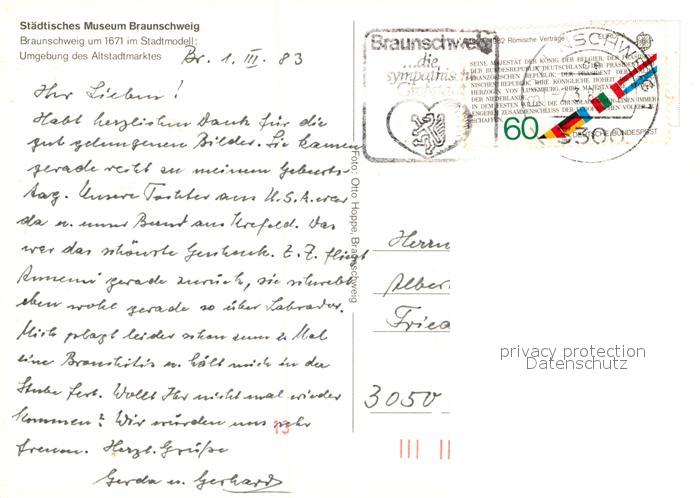 Städtisches Museum Braunschweig
Braunschweig um 1671 im Stadtmodell:
Umgebung des Altstadtmarktes
Br. 1. III. 83
Ihr Lieben!
Habt herzlichen Dank für die
gut gelungenen Bilder. Sie kamen
gerade recht zu meinem Geburts-
tag. Unsere Tochter aus U.S.A. war
da u. unser Bernd aus Krefeld. Das
war das schönste Geschenk. Z. Z. fliegt
Annemi gerade zurück, sie schwebt
eben wohl gerade so über Labrador.
Mich plagt leider schon zum 2. Mal
eine Bronchitis u. hält mich in der
Stube fest. Wollt Ihr nicht mal wieder
kommen? Wir würden uns sehr
freuen. Herzl. Grüße
Gerda u. Gerhard
13
Foto: Otto Hoppe, Braunschweig
Braunschweig
die
sympathische
Großstadt
1982 Römische Verträge
EUROPA
SEINE MAJESTÄT DER KÖNIG DER BELGIER, DER PRÄSIDENT
DER BUNDESREPUBLIK DEUTSCHLAND, DER PRÄSIDENT
FRANZÖSISCHEN REPUBLIK, DER PRÄSIDENT DER
NISCHEN REPUBLIK, IHRE KÖNIGLICHE HOHEIT DIE
HERZOGIN VON LUXEMBURG, IHRE MAJESTÄT
DER NIEDERLANDE,
IN DEM FESTEN WILLEN, DIE GRUNDLAGEN EINES IMMER
SCHAFFEN
60
DEUTSCHE BUNDESPOST
3300
Herrn
Alber
Fried
3050
privacy protection
Datenschutz